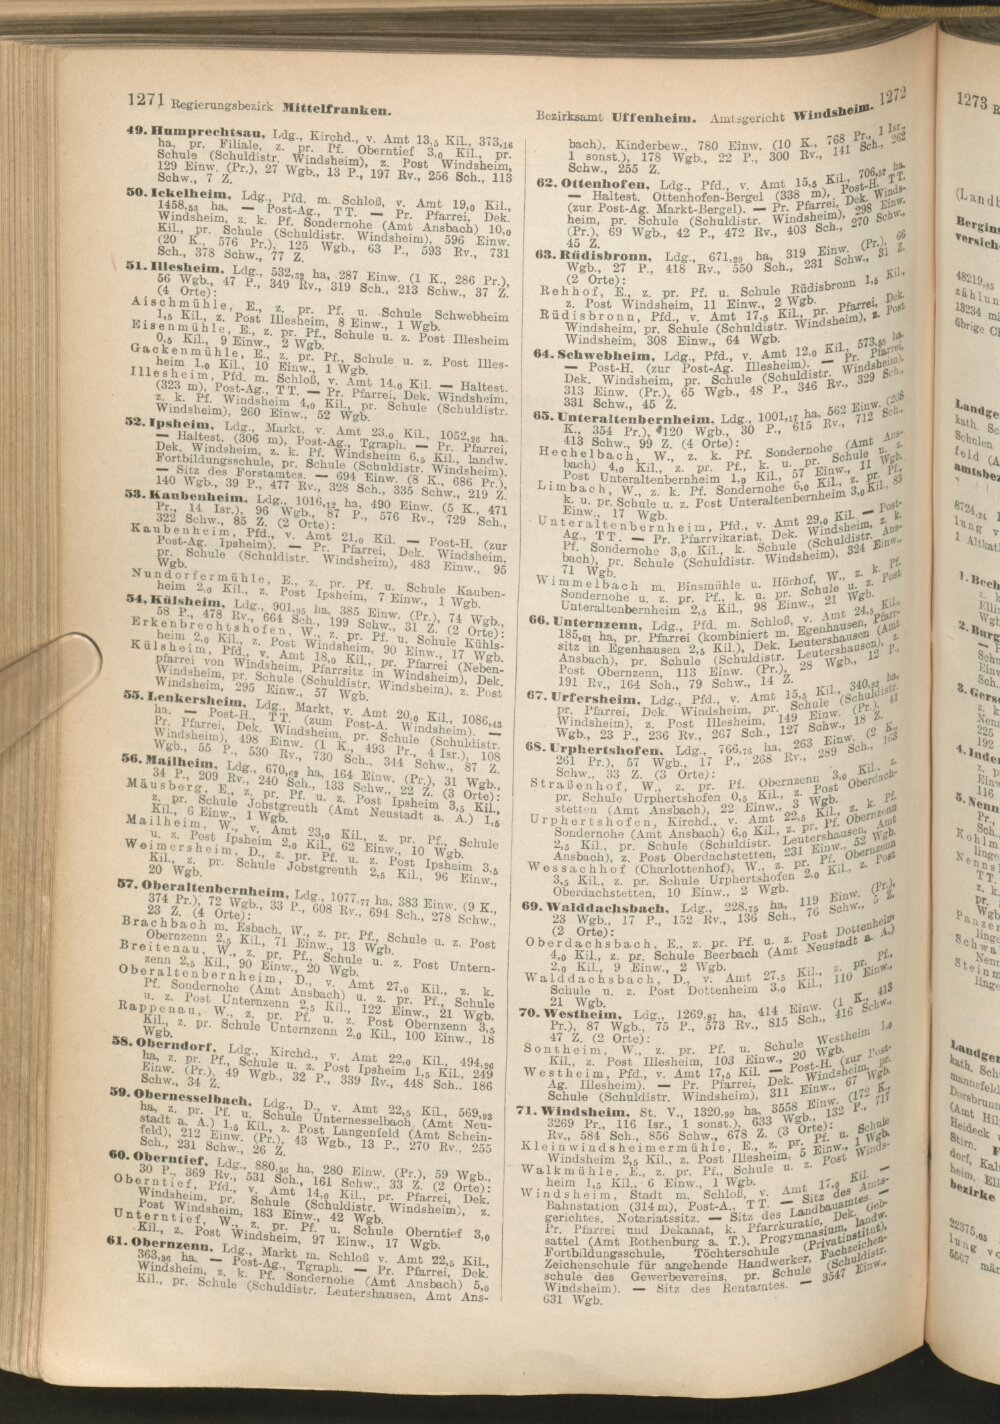 1271 Regierungsbezirk Mittelfranken.
49. Humprechtsau, Ldg., Kirchd., v. Amt 13,5 Kil., 373,16
ha, pr. Filiale, z. pr. Pf. Oberntief 3,0 Kil., pr.
Schule (Schuldistr. Windsheim), z. Post Windsheim,
129 Einw. (Pr.), 27 Wgb., 13 P., 197 Rv., 256 Sch., 113
Schw., 7 Z.
50. Ickelheim, Ldg., Pfd. m. Schloß, v. Amt 19,0 Kil.,
1458,53 ha. — Post-Ag., TT. — Pr. Pfarrei, Dek.
Windsheim, z. k. Pf. Sondernohe (Amt Ansbach) 10,0
Kil., pr. Schule (Schuldistr. Windsheim), 596 Einw.
(20 K., 576 Pr.), 125 Wgb., 63 P., 593 Rv., 731
Sch., 378 Schw., 77 Z.
51. Illesheim, Ldg., 532,32 ha, 287 Einw. (1 K., 286 Pr.),
56 Wgb., 47 P., 349 Rv., 319 Sch., 213 Schw., 37 Z.
(4 Orte):
Aischmühle, E., z. pr. Pf. u. Schule Schwebheim
1,5 Kil., z. Post Illesheim, 8 Einw., 1 Wgb.
Eisenmühle, E., z. pr. Pf., Schule u. z. Post Illesheim
0,5 Kil., 9 Einw., 2 Wgb.
Gackenmühle, E., z. pr. Pf., Schule u. z. Post Illes-
heim 1,0 Kil., 10 Einw., 1 Wgb.
Illesheim, Pfd. m. Schloß, v. Amt 14,0 Kil. — Haltest.
(323 m), Post-Ag., TT. — Pr. Pfarrei, Dek. Windsheim,
z. k. Pf. Windsheim 4,0 Kil., pr. Schule (Schuldistr.
Windsheim), 260 Einw., 52 Wgb.
52. Ipsheim, Ldg., Markt, v. Amt 23,0 Kil., 1052,26 ha.
— Haltest. (306 m), Post-Ag., Tgraph. — Pr. Pfarrei,
Dek. Windsheim, z. k. Pf. Windsheim 6,5 Kil., landw.
Fortbildungsschule, pr. Schule (Schuldistr. Windsheim).
— Sitz des Forstamtes. — 694 Einw. (8 K., 686 Pr.),
140 Wgb., 39 P., 477 Rv., 328 Sch., 335 Schw., 219 Z.
53. Kaubenheim, Ldg., 1016,12 ha, 490 Einw. (5 K., 471
Pr., 14 Isr.), 96 Wgb., 87 P., 576 Rv., 729 Sch.,
322 Schw., 85 Z. (2 Orte):
Kaubenheim, Pfd., v. Amt 21,0 Kil. — Post-H. (zur
Post-Ag. Ipsheim). — Pr. Pfarrei, Dek. Windsheim,
pr. Schule (Schuldistr. Windsheim), 483 Einw., 95
Wgb.
Nundorfermühle, E., z. pr. Pf. u. Schule Kauben-
heim 2,0 Kil., z. Post Ipsheim, 7 Einw., 1 Wgb.
54. Külsheim, Ldg., 901,95 ha, 385 Einw. (Pr.), 74 Wgb.,
58 P., 478 Rv., 664 Sch., 199 Schw., 31 Z. (2 Orte):
Erkenbrechtshofen, W., z. pr. Pf. u. Schule Kühls-
heim 2,0 Kil., z. Post Windsheim, 90 Einw., 17 Wgb.
Külsheim, Pfd., v. Amt 18,0 Kil., pr. Pfarrei (Neben-
pfarrei von Windsheim, Pfarrsitz in Windsheim), Dek.
Windsheim, pr. Schule (Schuldistr. Windsheim), z. Post
Windsheim, 295 Einw., 57 Wgb.
55. Lenkersheim, Ldg., Markt, v. Amt 20,0 Kil., 1086,43
ha. — Post-H., TT. (zum Post-A. Windsheim). —
Pr. Pfarrei, Dek. Windsheim, pr. Schule (Schuldistr.
Windsheim), 498 Einw. (1 K., 493 Pr., 4 Isr.), 108
Wgb., 55 P., 530 Rv., 730 Sch., 344 Schw., 87 Z.
56. Mailheim, Ldg., 670,62 ha, 164 Einw. (Pr.), 31 Wgb.,
34 P., 209 Rv., 240 Sch., 133 Schw., 22 Z. (3 Orte):
Mäusberg, E., z. pr. Pf. u. z. Post Ipsheim 3,5 Kil.,
z. pr. Schule Jobstgreuth (Amt Neustadt a. A.) 1,5
Kil., 6 Einw., 1 Wgb.
Mailheim, W., v. Amt 23,0 Kil., z. pr. Pf., Schule
u. z. Post Ipsheim 2,0 Kil., 62 Einw., 10 Wgb.
Weimersheim, D., z. pr. Pf. u. z. Post Ipsheim 3,5
Kil., z. pr. Schule Jobstgreuth 2,5 Kil., 96 Einw.,
20 Wgb.
57. Oberaltenbernheim, Ldg., 1077,77 ha, 383 Einw. (9 K.,
374 Pr.), 72 Wgb., 33 P., 608 Rv., 694 Sch., 278 Schw.,
23 Z. (4 Orte):
Brachbach m. Esbach, W., z. pr. Pf., Schule u. z. Post
Obernzenn 2,5 Kil., 71 Einw., 13 Wgb.
Breitenau, W., z. pr. Pf., Schule u. z. Post Untern-
zenn 2,5 Kil., 90 Einw., 20 Wgb.
Oberaltenbernheim, D., v. Amt 27,0 Kil., z. k.
Pf. Sondernohe (Amt Ansbach) u. z. pr. Pf., Schule
u. z. Post Unternzenn 2,5 Kil., 122 Einw., 21 Wgb.
Rappenau, W., z. pr. Pf. u. z. Post Obernzenn 3,5
Kil., z. pr. Schule Unternzenn 2,0 Kil., 100 Einw., 18
Wgb.
58. Oberndorf, Ldg., Kirchd., v. Amt 22,0 Kil., 494,26
ha, z. pr. Pf., Schule u. z. Post Ipsheim 1,5 Kil., 249
Einw. (Pr.), 49 Wgb., 32 P., 339 Rv., 448 Sch., 186
Schw., 34 Z.
59. Obernesselbach, Ldg., D., v. Amt 22,5 Kil., 569,93
ha, z. pr. Pf. u. Schule Unternesselbach (Amt Neu-
stadt a. A.) 1,5 Kil., z. Post Langenfeld (Amt Schein-
feld), 212 Einw. (Pr.), 43 Wgb., 13 P., 270 Rv., 255
Sch., 231 Schw., 26 Z.
60. Oberntief, Ldg., 880,36 ha, 280 Einw. (Pr.), 59 Wgb.,
30 P., 369 Rv., 531 Sch., 161 Schw., 33 Z. (2 Orte):
Oberntief, Pfd., v. Amt 14,0 Kil., pr. Pfarrei, Dek.
Windsheim, pr. Schule (Schuldistr. Windsheim), z.
Post Windsheim, 183 Einw., 42 Wgb.
Unterntief, W., z. pr. Pf. u. Schule Oberntief 3,0
Kil., z. Post Windsheim, 97 Einw., 17 Wgb.
61. Obernzenn, Ldg., Markt m. Schloß v. Amt 22,5 Kil.,
363,36 ha. — Post-Ag., Tgraph. — Pr. Pfarrei, Dek.
Windsheim, z. k. Pf. Sondernohe (Amt Ansbach) 5,0
Kil., pr. Schule (Schuldistr. Leutershausen, Amt Ans-
Bezirksamt Uffenheim. Amtsgericht Windsheim. 1272
bach), Kinderbew., 780 Einw. (10 K., 768 Pr., 1 Isr.,
1 sonst.), 178 Wgb., 22 P., 300 Rv., 141 Sch., 262
Schw., 255 Z.
62. Ottenhofen, Ldg., Pfd., v. Amt 15,5 Kil., 706,57 ha.
— Haltest. Ottenhofen-Bergel (338 m), Post-H. TT.
(zur Post-Ag. Markt-Bergel). — Pr. Pfarrei, Dek. Winds-
heim, pr. Schule (Schuldistr. Windsheim), 298 Einw.
(Pr.), 69 Wgb., 42 P., 472 Rv., 403 Sch., 270 Schw.,
45 Z.
63. Rüdisbronn, Ldg., 671,29 ha, 319 Einw. (Pr.), 66
Wgb., 27 P., 418 Rv., 550 Sch., 231 Schw., 31 Z.
(2 Orte):
Rehhof, E., z. pr. Pf. u. Schule Rüdisbronn 1,5 Kil.,
z. Post Windsheim, 11 Einw., 2 Wgb.
Rüdisbronn, Pfd., v. Amt 17,5 Kil., pr. Pfarrei, Dek.
Windsheim, pr. Schule (Schuldistr. Windsheim), z. Post
Windsheim, 308 Einw., 64 Wgb.
64. Schwebheim, Ldg., Pfd., v. Amt 12,0 Kil., 573,55 ha.
— Post-H. (zur Post-Ag. Illesheim). — Pr. Pfarrei,
Dek. Windsheim, pr. Schule (Schuldistr. Windsheim),
313 Einw. (Pr.), 65 Wgb., 48 P., 346 Rv., 329 Sch.,
331 Schw., 45 Z.
65. Unteraltenbernheim, Ldg., 1001,17 ha, 562 Einw. (208
K., 354 Pr.), 120 Wgb., 30 P., 615 Rv., 712 Sch.,
413 Schw., 99 Z. (4 Orte):
Hechelbach, W., z. k. Pf. Sondernohe (Amt Ans-
bach) 4,0 Kil., z. pr. Pf., k. u. pr. Schule u. z.
Post Unteraltenbernheim 1,0 Kil., 57 Einw., 11 Wgb.
Limbach, W., z. k. Pf. Sondernohe 6,0 Kil., z. pr. Pf.,
k. u. pr. Schule u. z. Post Unteraltenbernheim 3,0 Kil., 83
Einw., 17 Wgb.
Unteraltenbernheim, Pfd., v. Amt 29,0 Kil. — Post-
Ag., TT. — Pr. Pfarrvikariat, Dek. Windsheim, z. k.
Pf. Sondernohe 3,0 Kil., k. Schule (Schuldistr. Ans-
bach), pr. Schule (Schuldistr. Windsheim), 324 Einw.,
71 Wgb.
Wimmelbach m. Binsmühle u. Hörhof, W., z. k. Pf.
Sondernohe u. z. pr. Pf., k. u. pr. Schule u. z. Post
Unteraltenbernheim 2,5 Kil., 98 Einw., 21 Wgb.
66. Unternzenn, Ldg., Pfd. m. Schloß, v. Amt 24,5 Kil.,
185,61 ha, pr. Pfarrei (kombiniert m. Egenhausen, Pfarr-
sitz in Egenhausen 2,5 Kil.), Dek. Leutershausen (Amt
Ansbach), pr. Schule (Schuldistr. Leutershausen), z.
Post Obernzenn, 113 Einw. (Pr.), 28 Wgb., 12 P.,
191 Rv., 164 Sch., 79 Schw., 14 Z.
67. Urfersheim, Ldg., Pfd., v. Amt 15,5 Kil., 340,92 ha,
pr. Pfarrei, Dek. Windsheim, pr. Schule (Schuldistr.
Windsheim), z. Post Illesheim, 149 Einw. (Pr.), 41
Wgb., 23 P., 236 Rv., 267 Sch., 127 Schw., 18 Z.
68. Urphertshofen, Ldg., 766,76 ha, 263 Einw. (2 K.,
261 Pr.), 57 Wgb., 17 P., 268 Rv., 289 Sch., 163
Schw., 33 Z. (3 Orte):
Straßenhof, W., z. pr. Pf. Obernzenn 3,0 Kil., z.
pr. Schule Urphertshofen 0,5 Kil., z. Post Oberdach-
stetten (Amt Ansbach), 22 Einw., 3 Wgb.
Urphertshofen, Kirchd., v. Amt 22,5 Kil., z. k. Pf.
Sondernohe (Amt Ansbach) 6,0 Kil., z. pr. Pf. Obernzenn
2,5 Kil., pr. Schule (Schuldistr. Leutershausen, Amt
Ansbach), z. Post Oberdachstetten, 231 Einw., 52 Wgb.
Wessachhof (Charlottenhof), W., z. pr. Pf. Obernzenn
3,5 Kil., z. pr. Schule Urphertshofen 2,0 Kil., z. Post
Oberdachstetten, 10 Einw., 2 Wgb.
69. Walddachsbach, Ldg., 228,75 ha, 119 Einw. (Pr.),
23 Wgb., 17 P., 152 Rv., 136 Sch., 76 Schw., 5 Z.
(2 Orte):
Oberdachsbach, E., z. pr. Pf. u. z. Post Dottenheim
4,0 Kil., z. pr. Schule Beerbach (Amt Neustadt a. A.)
2,0 Kil., 9 Einw., 2 Wgb.
Walddachsbach, D., v. Amt 27,5 Kil., z. pr. Pf.,
Schule u. z. Post Dottenheim 3,0 Kil., 110 Einw.,
21 Wgb.
70. Westheim, Ldg., 1269,87 ha, 414 Einw. (1 K., 413
Pr.), 87 Wgb., 75 P., 573 Rv., 815 Sch., 416 Schw.,
47 Z. (2 Orte):
Sontheim, W., z. pr. Pf. u. Schule Westheim 1,0
Kil., z. Post Illesheim, 103 Einw., 20 Wgb.
Westheim, Pfd., v. Amt 17,5 Kil. — Post-H. (zur Post-
Ag. Illesheim). — Pr. Pfarrei, Dek. Windsheim, pr.
Schule (Schuldistr. Windsheim), 311 Einw., 67 Wgb.
71. Windsheim, St. V., 1320,99 ha, 3558 Einw. (172 K.,
3269 Pr., 116 Isr., 1 sonst.), 633 Wgb., 132 P., 717
Rv., 584 Sch., 856 Schw., 678 Z. (3 Orte):
Kleinwindsheimermühle, E., z. pr. Pf. u. Schule
Windsheim 2,5 Kil., z. Post Illesheim, 5 Einw., 1 Wgb.
Walkmühle, E., z. pr. Pf., Schule u. z. Post Winds-
heim 1,5 Kil., 6 Einw., 1 Wgb.
Windsheim, Stadt m. Schloß, v. Amt 17,0 Kil. —
Bahnstation (314 m), Post-A., TT. — Sitz des Amts-
gerichtes, Notariatssitz. — Sitz des Landbauamtes. —
Pr. Pfarrei und Dekanat, k. Pfarrkuratie, Dek. Geb-
sattel (Amt Rothenburg a. T.), Progymnasium, landw.
Fortbildungsschule, Töchterschule (Privatinstitut),
Zeichenschule für angehende Handwerker, Fachzeichen-
schule des Gewerbevereins, pr. Schule (Schuldistr.
Windsheim). — Sitz des Rentamtes. — 3547 Einw.,
631 Wgb.
1273 R
(Landb
Bergins
versich
48219,85
zählun
13234 mi
übrige Ch
Landge
kath. Sc
Schulen
feld (A
amtsbez
8724,24
lung v
1 Altkat
1. Bech
z. k
Elli
Wgb
2. Burg
Schu
Einw
Sch.
3. Gers
z. k
Nenn
225
192
4. Inde
z. P
Einw
116
5. Nenn
Pr.,
Sch.
Kohlm
linge
Nenns
TT.
z. k.
pr.
Wgb
Panzer
linge
Schwa
Nenn
Steinm
linge
Landger
kath. Sch
mannsfeld
Dorsbrunn
(Amt Hil
Heideck
Stirn.
dorf, Kal
heim, Ell
bezirke
22375,65
lung vo
5567 män